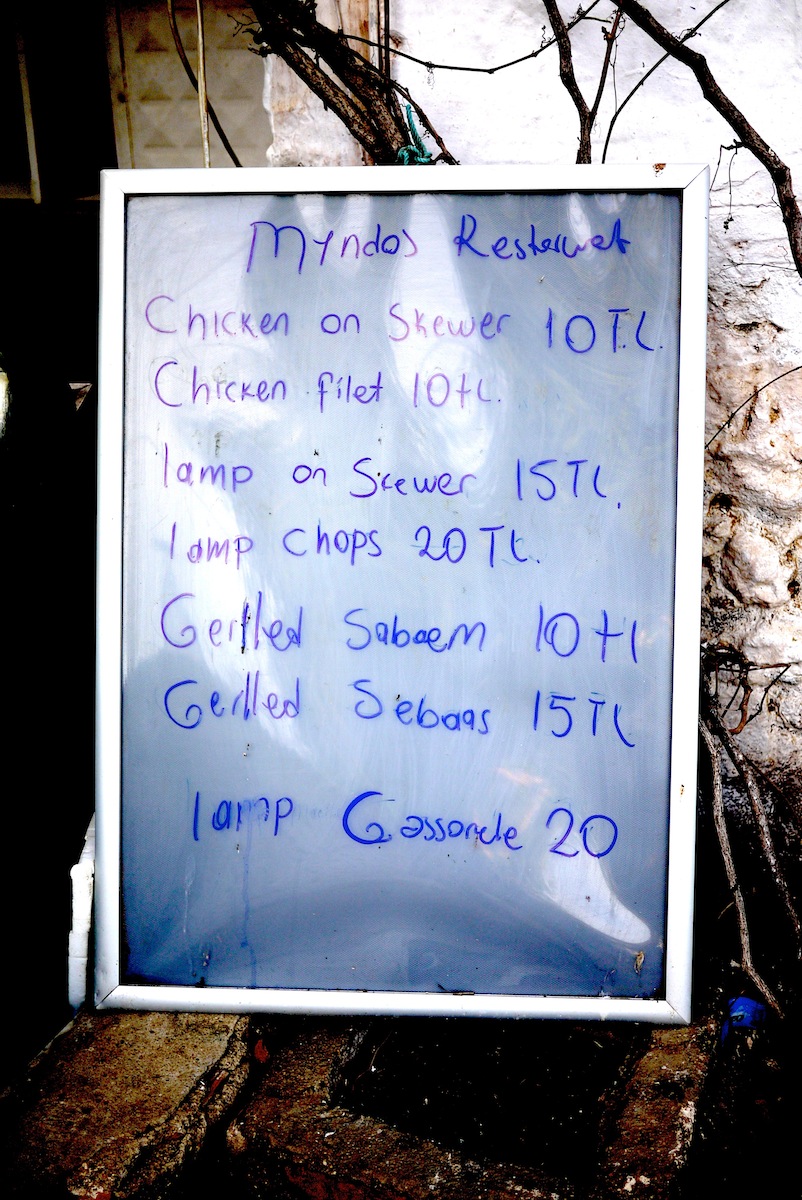 Myndos Resterunet
Chicken on Skewer 10 TL.
Chicken filet 10 tL.
lamp on Skewer 15 TL.
lamp chops 20 TL.
Gerlled Sabaem 10 tl
Gerlled Sebaas 15 TL
lamp Gassorele 20